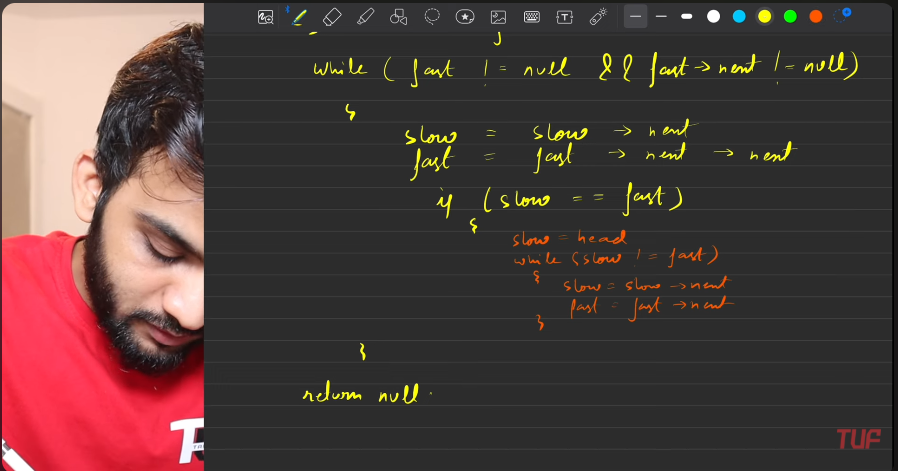 while ( fast != null && fast → next != null)
{
slow = slow → next
fast = fast → next → next
if (slow == fast)
{
slow = head
while (slow != fast)
{
slow = slow → next
fast = fast → next
}
}
return null
TUF